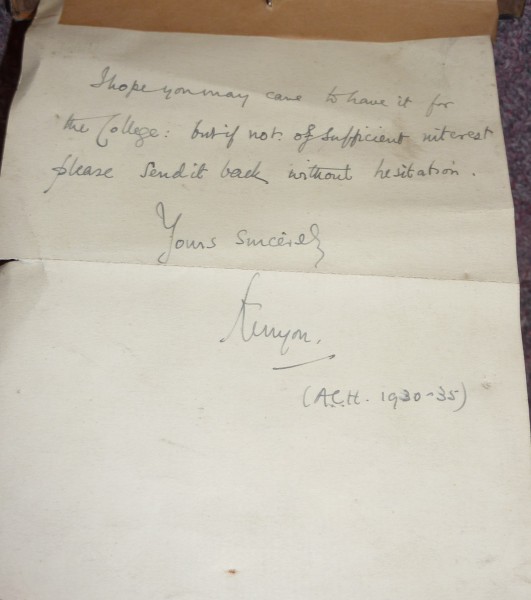 I hope you may care to have it for
the College: but if not of sufficient interest
please send it back without hesitation.
Yours sincerely
Kenyon.
(A.C.H. 1930-35)